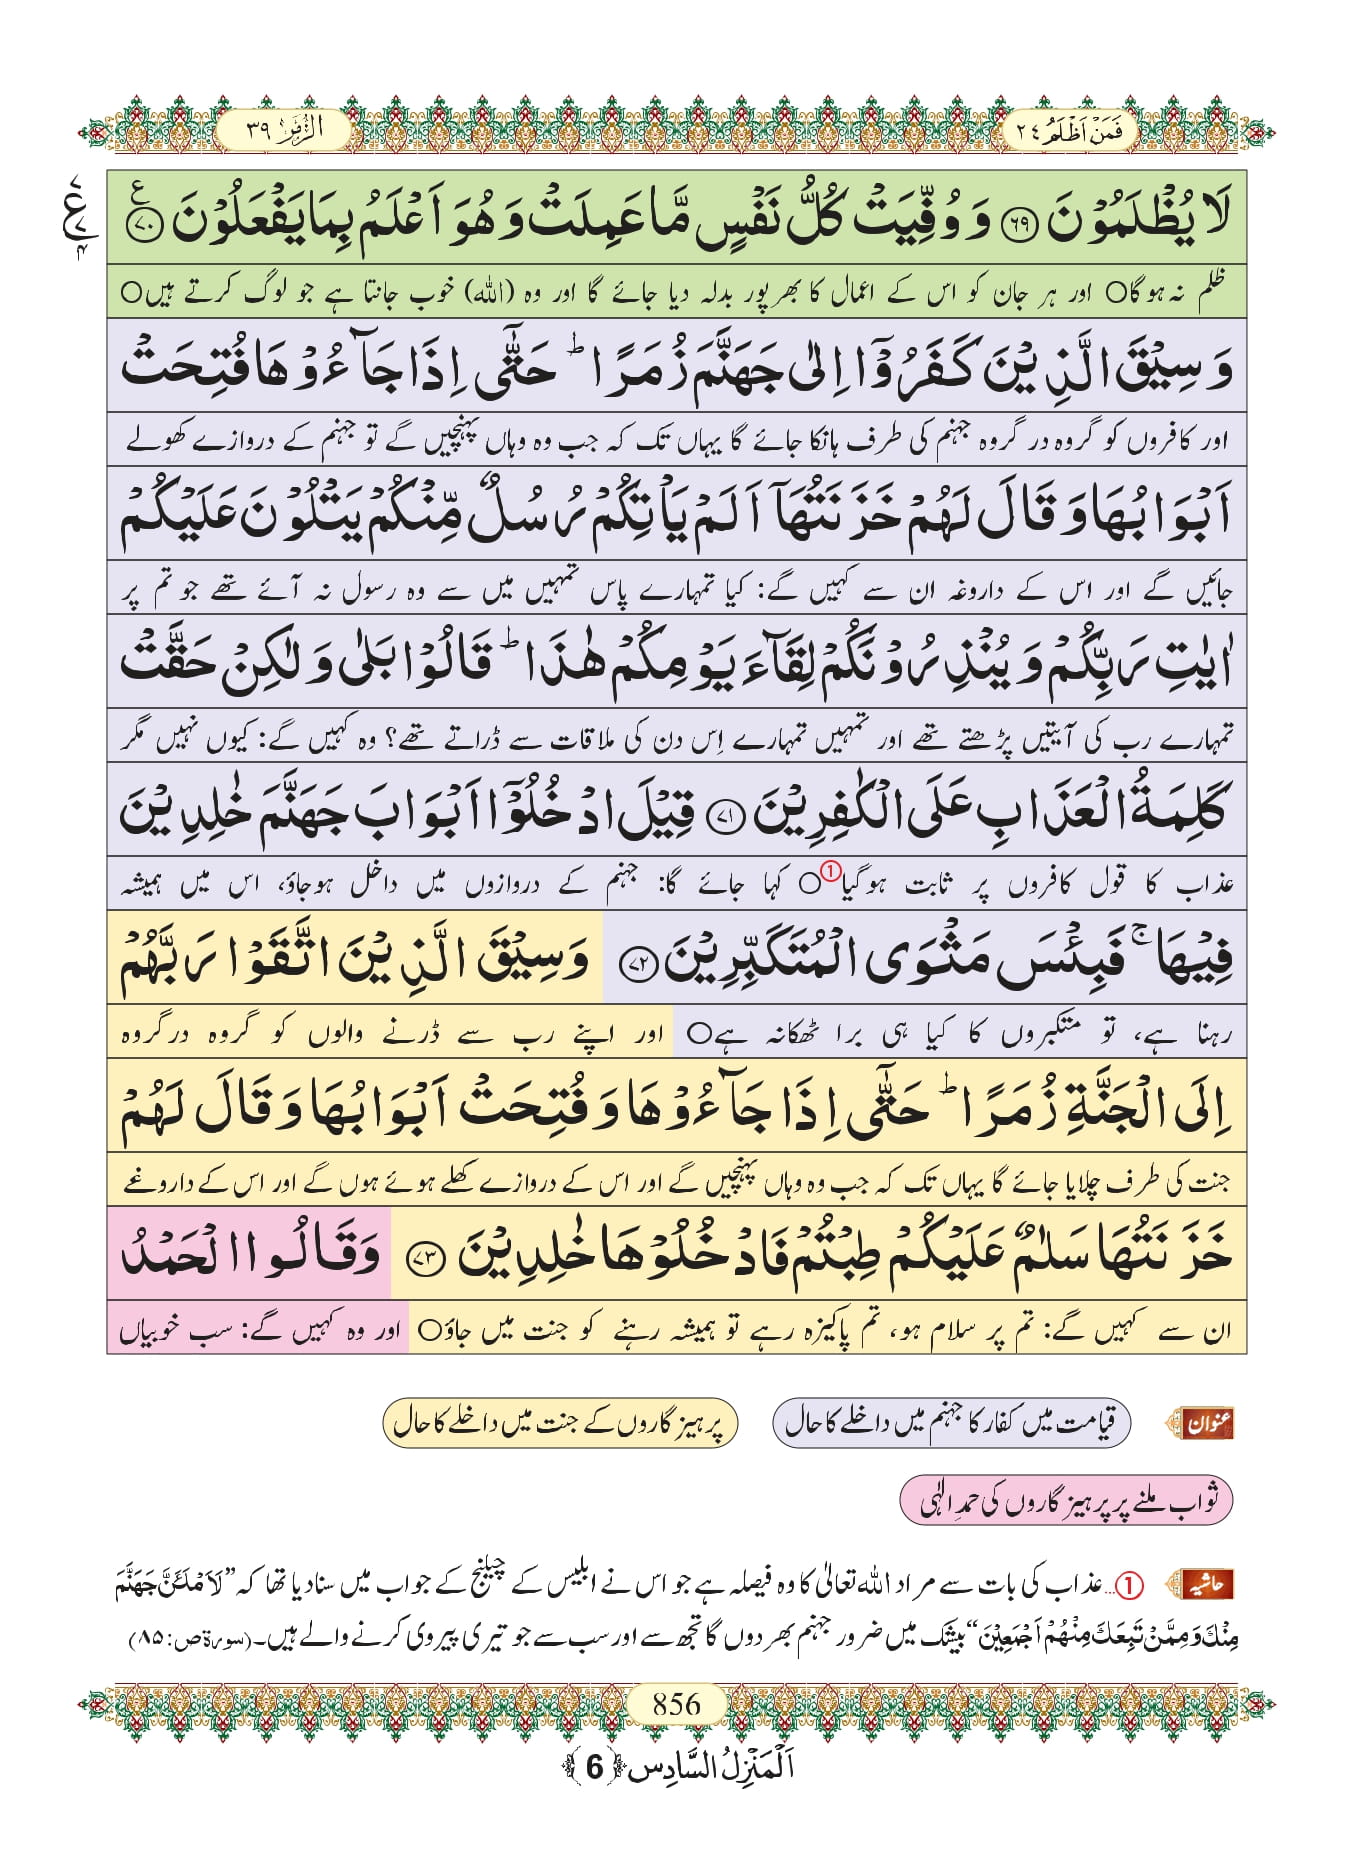 فَمَنْ اَظْلَمُ ٢٤
اَلزُّمَر ٣٩
لَا يُظْلَمُوْنَ ﴿۶۹﴾ وَ وُفِّيَتْ كُلُّ نَفْسٍ مَّا عَمِلَتْ وَ هُوَ اَعْلَمُ بِمَا يَفْعَلُوْنَ ﴿۷۰﴾ ع
ع ٧ ٤
ظلم نہ ہوگا○ اور ہر جان کو اس کے اعمال کا بھرپور بدلہ دیا جائے گا اور وہ (اللہ) خوب جانتا ہے جو لوگ کرتے ہیں○
وَ سِيْقَ الَّذِيْنَ كَفَرُوْۤا اِلٰى جَهَنَّمَ زُمَرًا ؕ حَتّٰۤى اِذَا جَآءُوْهَا فُتِحَتْ
اور کافروں کو گروہ در گروہ جہنم کی طرف ہانکا جائے گا یہاں تک کہ جب وہ وہاں پہنچیں گے تو جہنم کے دروازے کھولے
اَبْوَابُهَا وَ قَالَ لَهُمْ خَزَنَتُهَاۤ اَلَمْ يَاْتِكُمْ رُسُلٌ مِّنْكُمْ يَتْلُوْنَ عَلَيْكُمْ
جائیں گے اور اس کے داروغہ ان سے کہیں گے: کیا تمہارے پاس تمہیں میں سے وہ رسول نہ آئے تھے جو تم پر
اٰيٰتِ رَبِّكُمْ وَ يُنْذِرُوْنَكُمْ لِقَآءَ يَوْمِكُمْ هٰذَا ؕ قَالُوْا بَلٰى وَ لٰكِنْ حَقَّتْ
تمہارے رب کی آیتیں پڑھتے تھے اور تمہیں تمہارے اِس دن کی ملاقات سے ڈراتے تھے؟ وہ کہیں گے: کیوں نہیں مگر
كَلِمَةُ الْعَذَابِ عَلَى الْكٰفِرِيْنَ ﴿۷۱﴾ قِيْلَ ادْخُلُوْۤا اَبْوَابَ جَهَنَّمَ خٰلِدِيْنَ
عذاب کا قول کافروں پر ثابت ہوگیا①○ کہا جائے گا: جہنم کے دروازوں میں داخل ہوجاؤ، اس میں ہمیشہ
فِيْهَا ۚ فَبِئْسَ مَثْوَى الْمُتَكَبِّرِيْنَ ﴿۷۲﴾ وَ سِيْقَ الَّذِيْنَ اتَّقَوْا رَبَّهُمْ
رہنا ہے، تو متکبروں کا کیا ہی برا ٹھکانہ ہے○ اور اپنے رب سے ڈرنے والوں کو گروہ درگروہ
اِلَى الْجَنَّةِ زُمَرًا ؕ حَتّٰۤى اِذَا جَآءُوْهَا وَ فُتِحَتْ اَبْوَابُهَا وَ قَالَ لَهُمْ
جنت کی طرف چلایا جائے گا یہاں تک کہ جب وہ وہاں پہنچیں گے اور اس کے دروازے کھلے ہوئے ہوں گے اور اس کے داروغے
خَزَنَتُهَا سَلٰمٌ عَلَيْكُمْ طِبْتُمْ فَادْخُلُوْهَا خٰلِدِيْنَ ﴿۷۳﴾ وَ قَالُوا الْحَمْدُ
ان سے کہیں گے: تم پر سلام ہو، تم پاکیزہ رہے تو ہمیشہ رہنے کو جنت میں جاؤ○ اور وہ کہیں گے: سب خوبیاں
عنوان قیامت میں کفار کا جہنم میں داخلے کا حال پرہیزگاروں کے جنت میں داخلے کا حال
ثواب ملنے پر پرہیزگاروں کی حمدِ الٰہی
حاشیہ ①…عذاب کی بات سے مراد اللہ تعالیٰ کا وہ فیصلہ ہے جو اس نے ابلیس کے چیلنج کے جواب میں سنا دیا تھا کہ ”لَاَمْلَـَٔنَّ جَهَنَّمَ
مِنْكَ وَ مِمَّنْ تَبِعَكَ مِنْهُمْ اَجْمَعِيْنَ“ بیشک میں ضرور جہنم بھردوں گا تجھ سے اور سب سے جو تیری پیروی کرنے والے ہیں۔(سورۃ ص:۸۵)
856
اَلْمَنْزِلُ السَّادِس ﴿6﴾